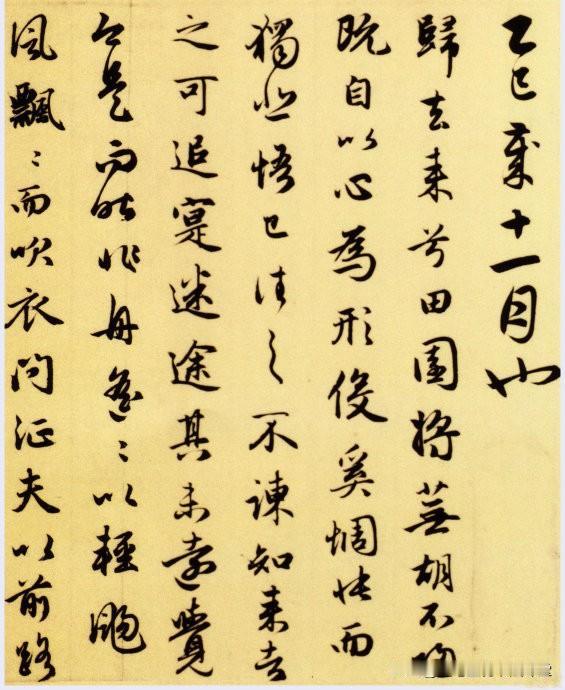 乙巳歲十一月也
歸去来兮田園将蕪胡不歸
既自以心為形役奚惆悵而
獨悲悟已往之不諫知来者
之可追寔迷途其未遠覺
今是而昨非舟遥〻以輕颺
風飄〻而吹衣問征夫以前路